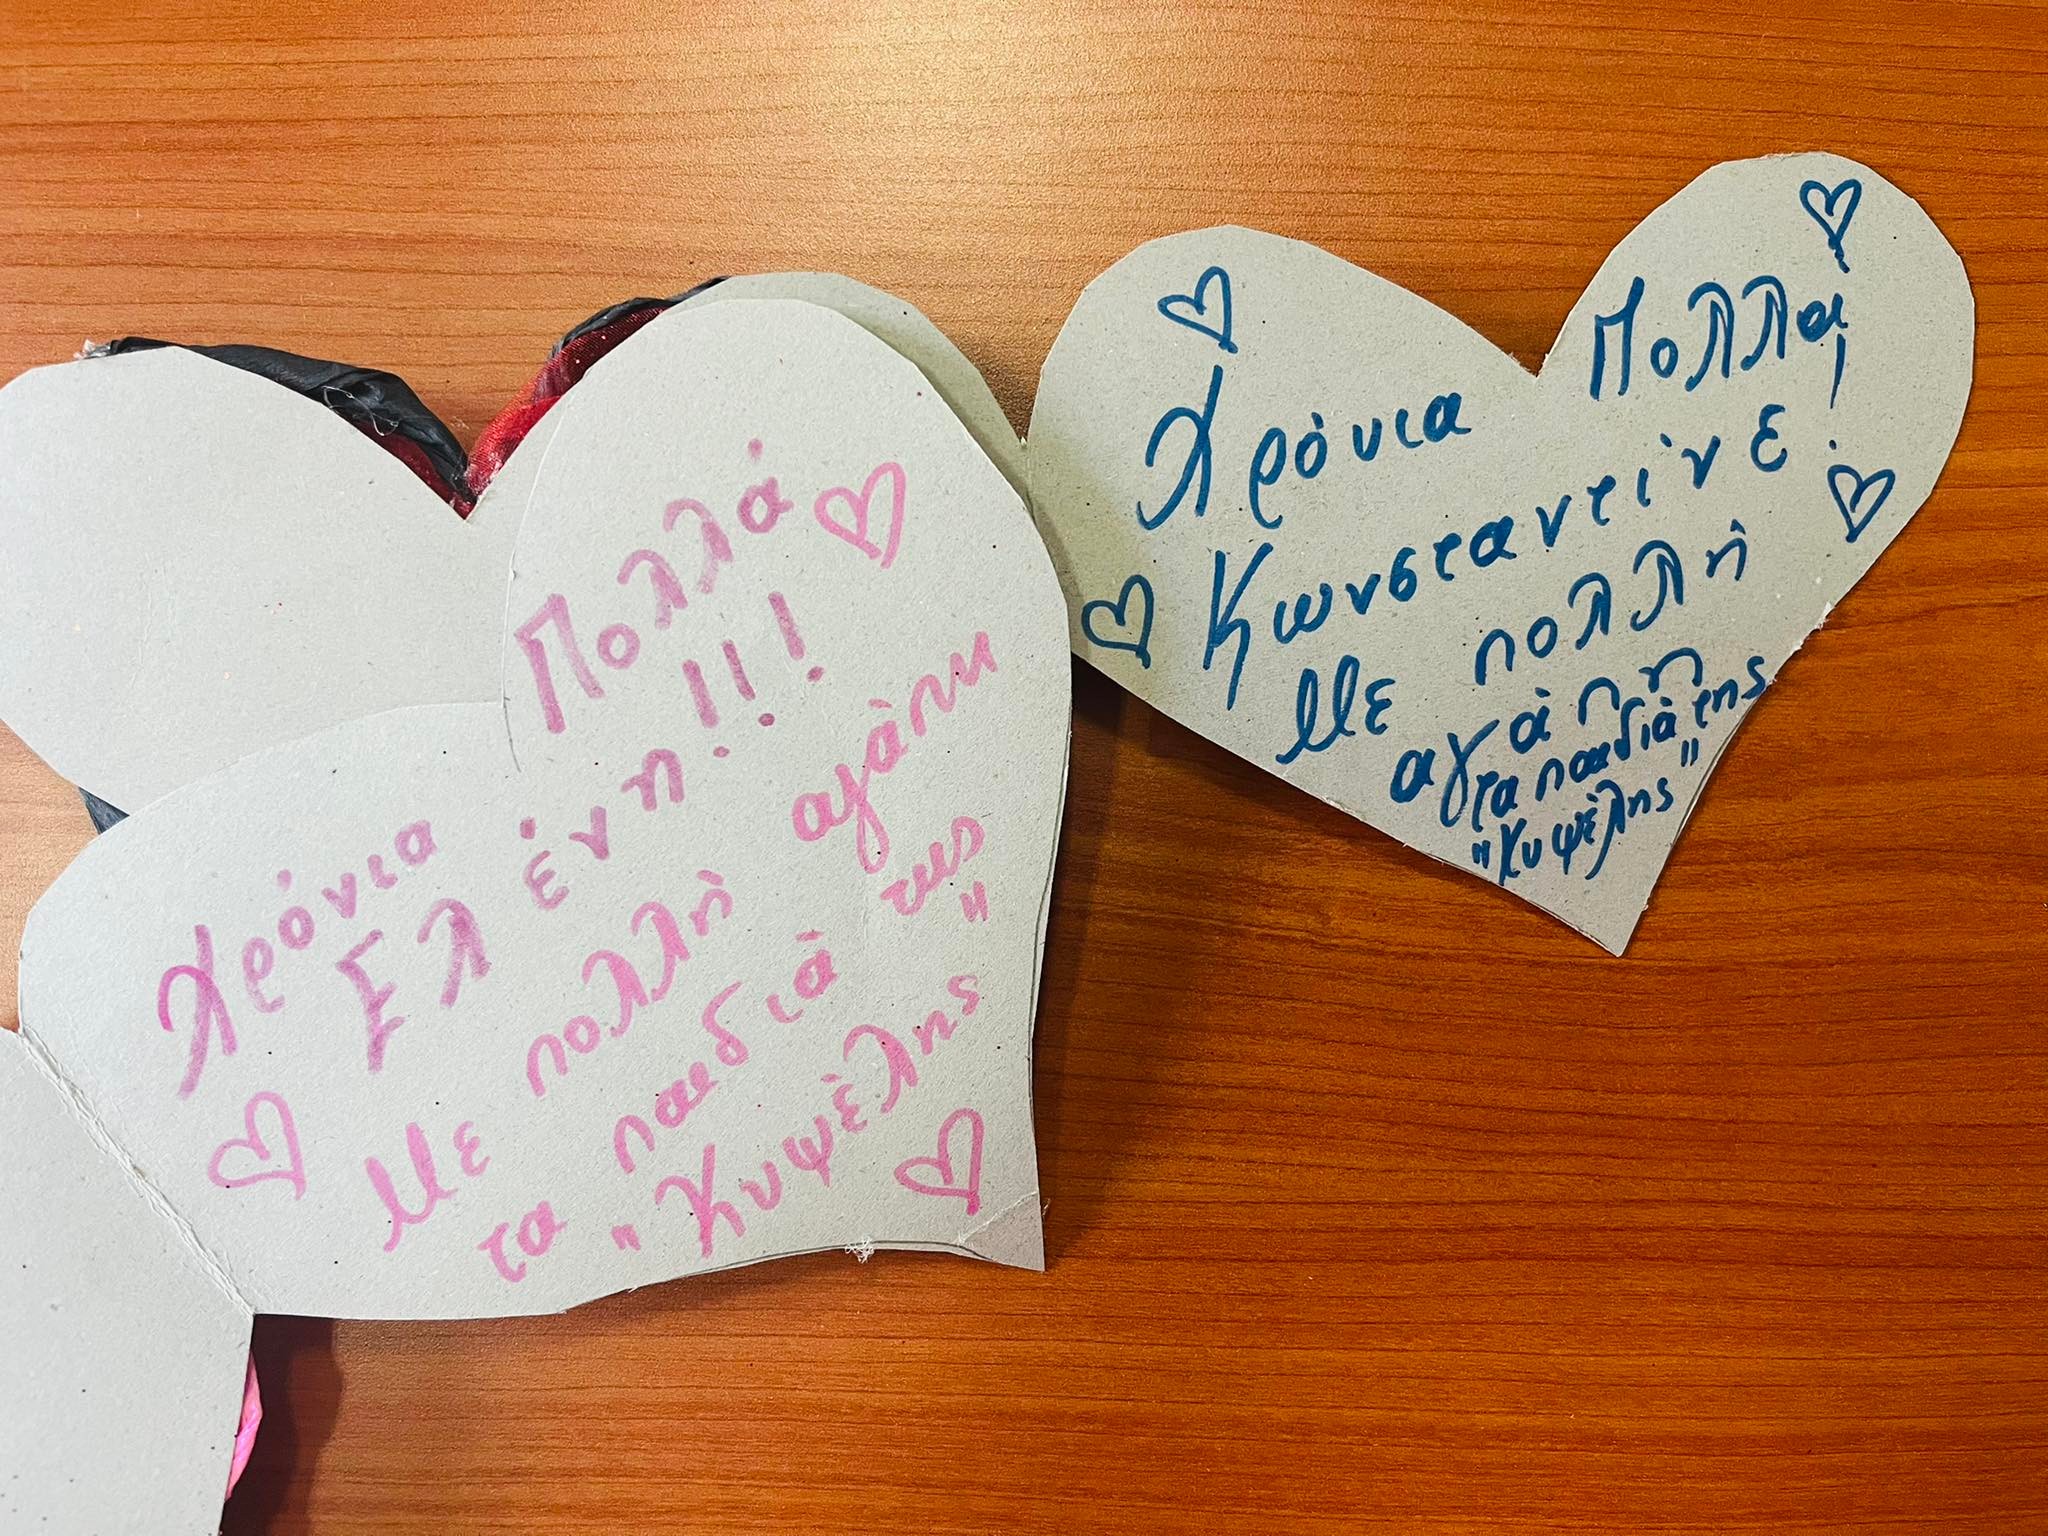 Χρόνια Πολλά
Ελένη!!!
Με πολλή αγάπη
τα παιδιά της
"Κυψέλης"
Χρόνια Πολλά
Κωνσταντίνε!
Με πολλή
αγάπη
τα παιδιά της
"Κυψέλης"